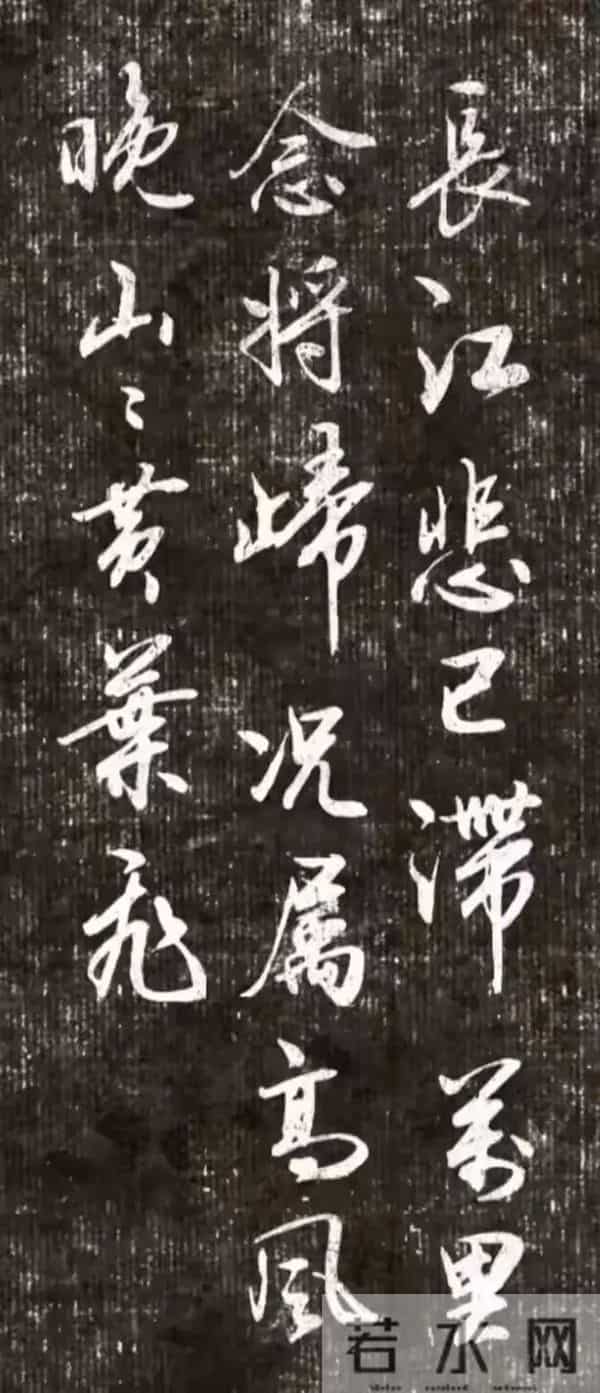 長江悲已滯萬里
念將歸况属高風
晚山〻黄葉飛
若水网